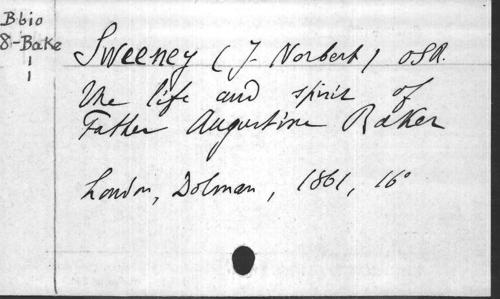 Bbio
8-Bake
1
1
Sweeney (J. Norbert) OSB.
The life and spirit of
Father Augustine Baker
London, Dolman, 1861, 16°